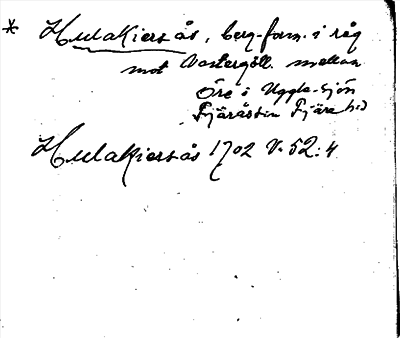 * Hulakiersås, berg-form. i råg
mot Västergötl. mellan
Öre i Uggle-sjön
Fjäråstin Fjäre hd
Hulakiersås 1702 V. 52:4